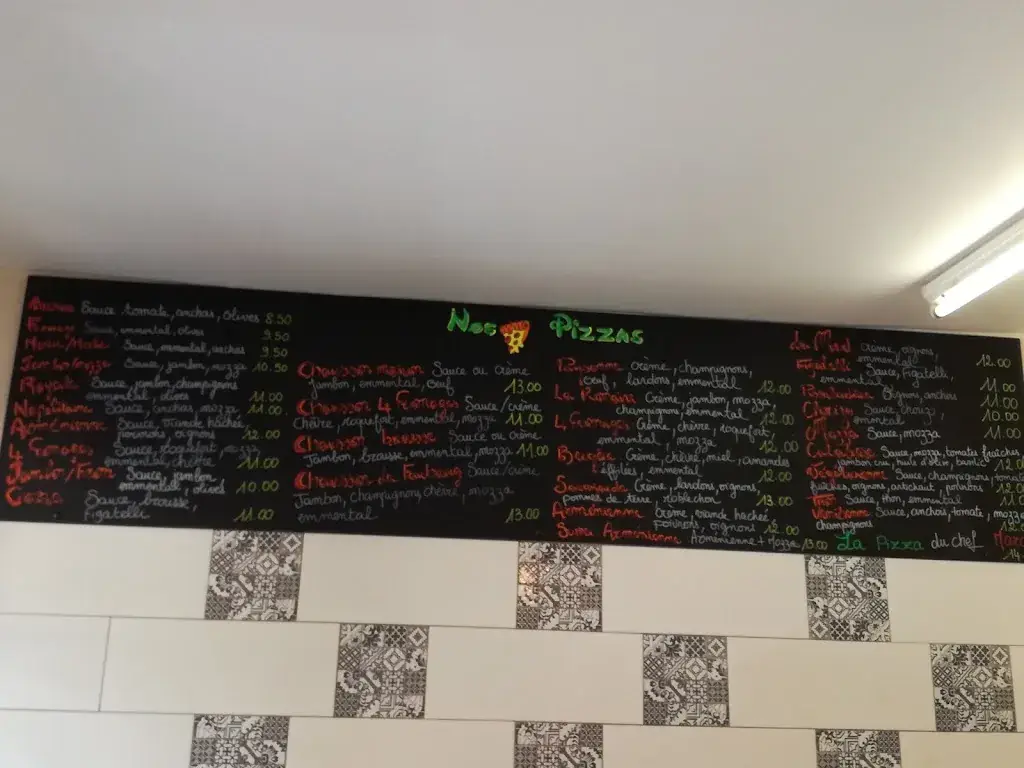 Nos Pizzas
Sauce tomate, anchois, olives 8.50
Sauce, emmental, olives 9.50
Moitié/Moitié Sauce, emmental, anchois 9.50
Jambo/Mozza Sauce, jambon, mozza 10.50
Royale Sauce, jambon, champignons
emmental, olives 11.00
Napolitaine Sauce, anchois, mozza 11.00
Arménienne Sauce, viande hachée,
poivrons, oignons 12.00
4 Fromages Sauce, roquefort, mozza
emmental, chèvre 11.00
Jambo/From Sauce, jambon,
emmental, olives 10.00
Sauce, brousse,
Figatelli 11.00
Chausson maison Sauce ou crème
jambon, emmental, oeuf 13.00
Chausson 4 Fromages Sauce/crème
Chèvre, roquefort, emmental, mozza 11.00
Chausson brousse Sauce ou crème
Jambon, brousse, emmental, mozza 11.00
Chausson du Faubourg Sauce/crème
Jambon, champignons, chèvre, mozza
emmental 13.00
crème, champignons,
oeuf, lardons, emmental 12.00
La Romaine Crème, jambon, mozza,
champignons, emmental 12.00
4 Fromages Crème, chèvre, roquefort,
emmental, mozza 12.00
Crème, chèvre, miel, amandes
effilées, emmental 12.00
Savoyarde Crème, lardons, oignons,
pommes de terre, reblochon 13.00
Arménienne Crème, viande hachée
poivrons, oignons 12.00
Super Arménienne Arménienne + Mozza 13.00
crème, oignons,
emmental 12.00
Figatelli Sauce, Figatelli,
emmental 11.00
Oignons, anchois 10.00
Chorizo Sauce, chorizo,
emmental 11.00
Mozza Sauce, mozza 11.00
Sauce, mozza, tomates fraîches
jambon cru, huile d'olive, basilic
Sauce, champignons, tomates
fraîches, oignons, artichaut, poivrons
Thon Sauce, thon, emmental
Sauce, anchois, tomate, mozza
champignons
La Pizza du chef